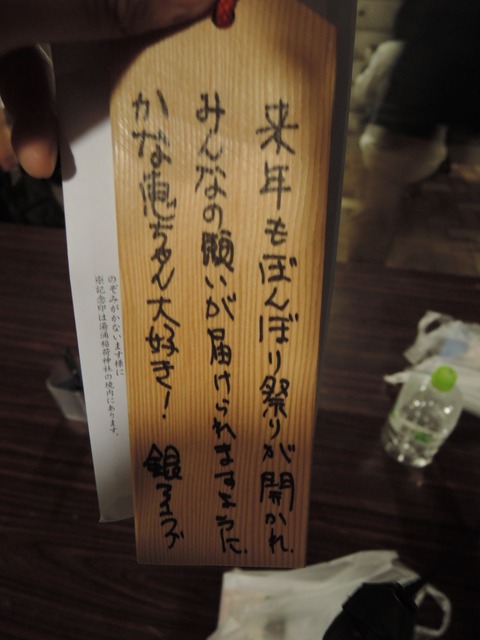 来年もぼんぼり祭りが開かれ、
みんなの願いが届けられますように。
かな恵ちゃん大好き！
のぞみがかないます様に
※記念印は湯涌稲荷神社の境内にあります。